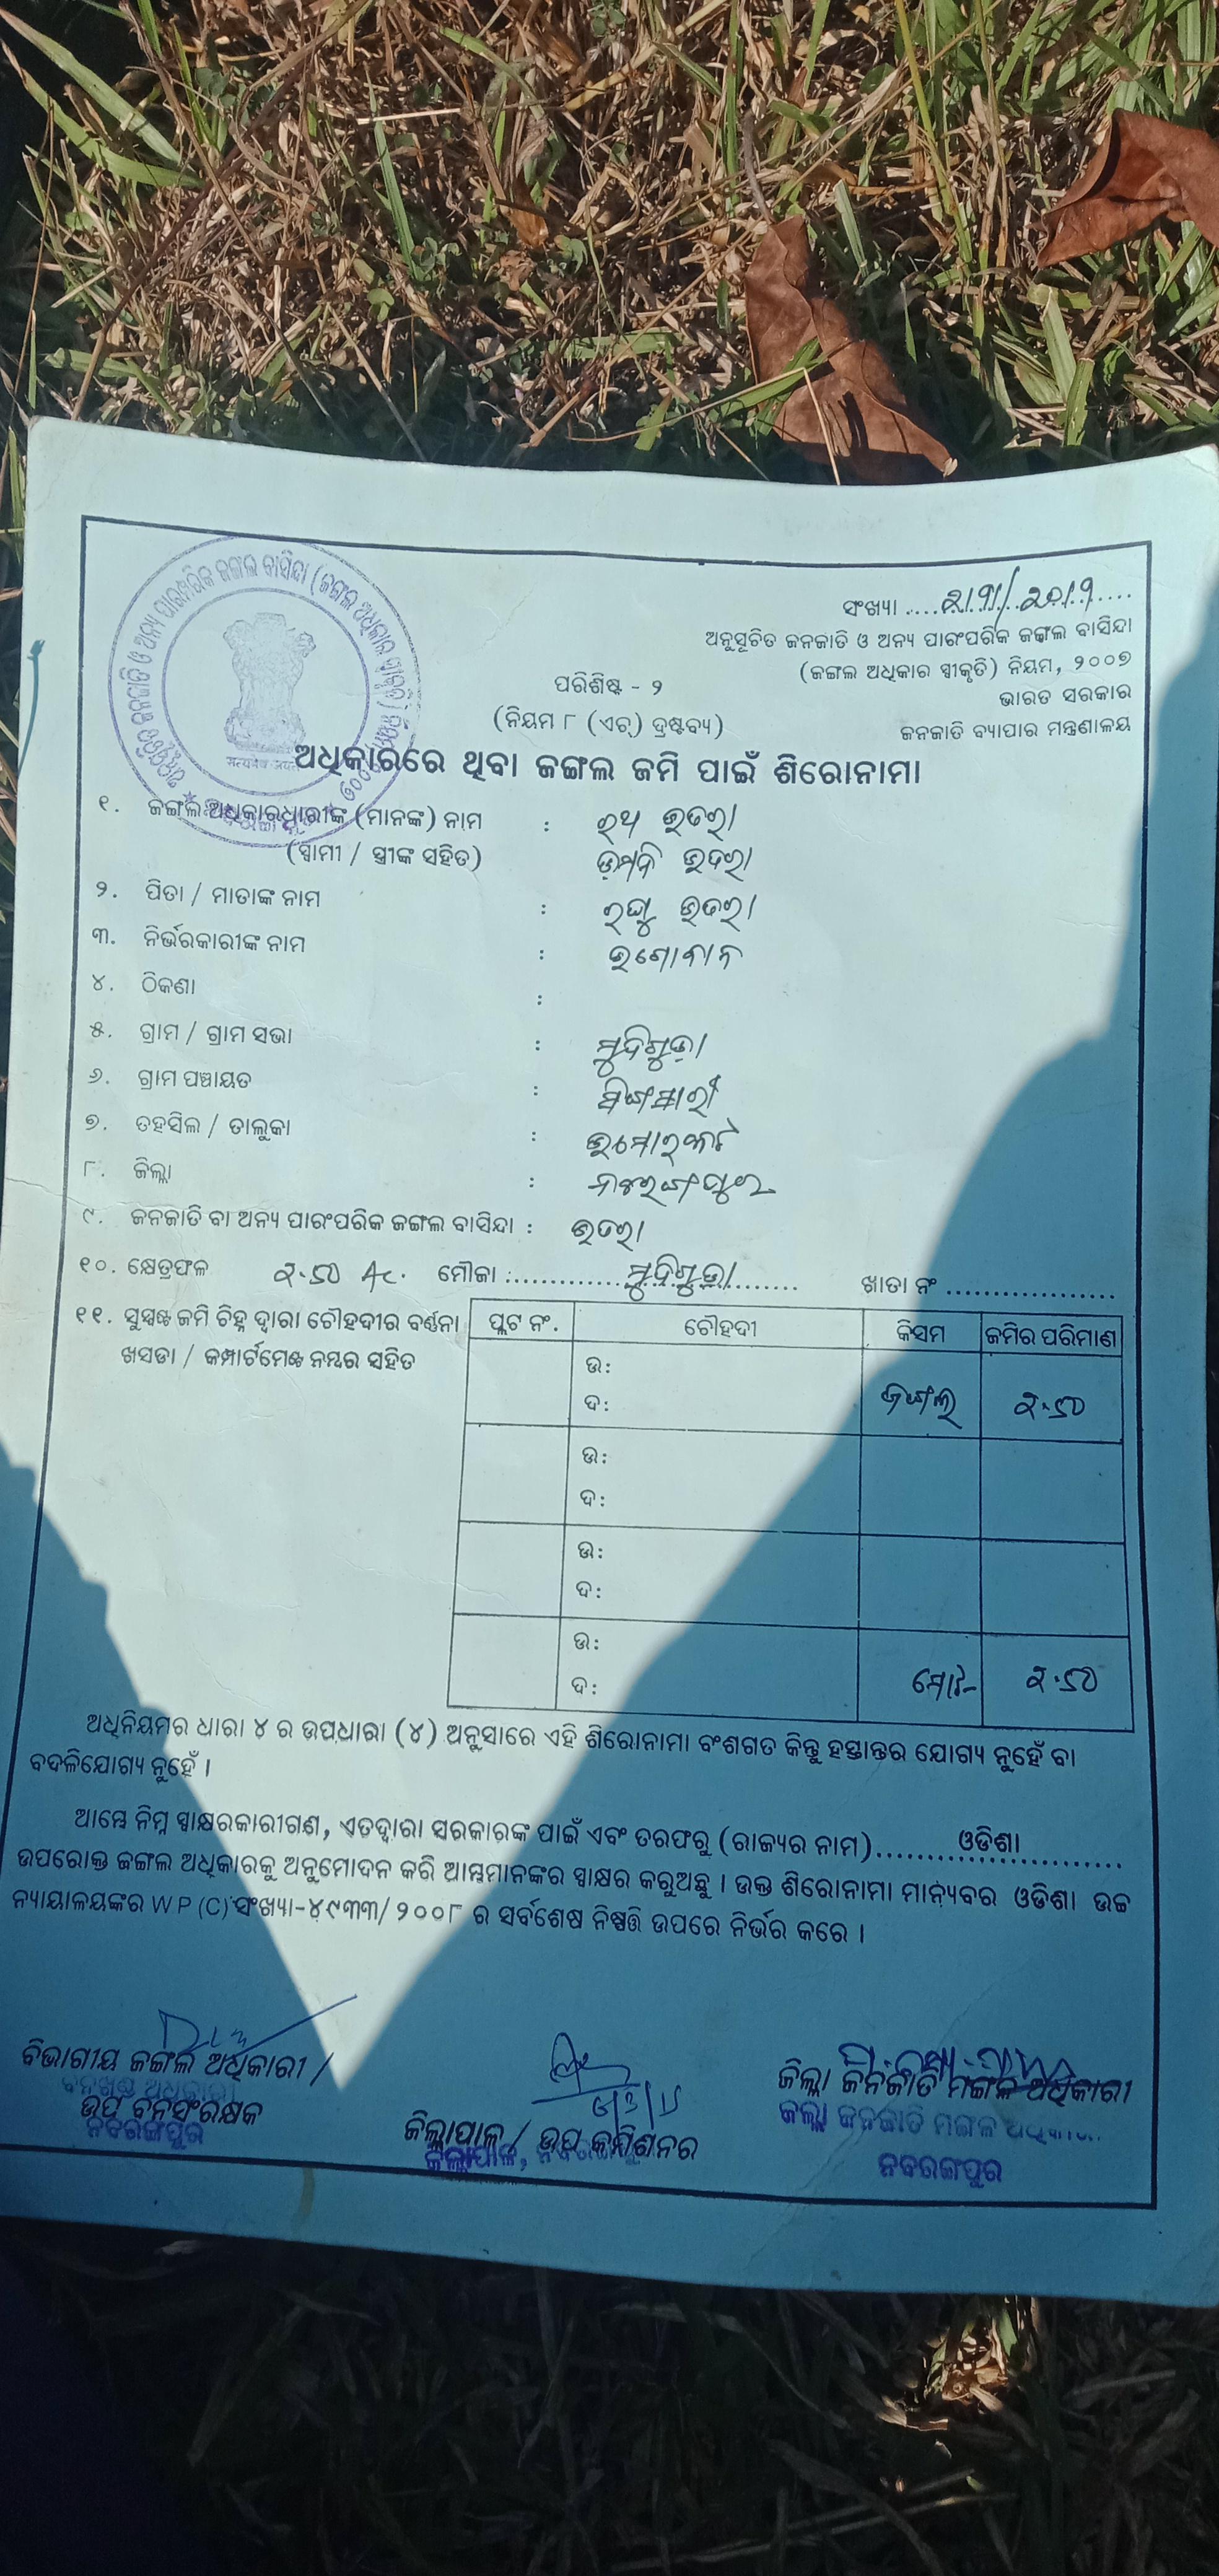 ସଂଖ୍ୟା
ଅନୁସୂଚିତ ଜନଜାତି ଓ ଅନ୍ୟ ପାରଂପରିକ ଜଙ୍ଗଲ ବାସିନ୍ଦା
(ଜଙ୍ଗଲ ଅଧିକାର ସ୍ୱୀକୃତି) ନିୟମ, ୨୦୦୭
ଭାରତ ସରକାର
ଜନଜାତି ବ୍ୟାପାର ମନ୍ତ୍ରଣାଳୟ
ପରିଶିଷ୍ଟ - ୨
(ନିୟମ ୮ (ଏଚ୍) ଦ୍ରଷ୍ଟବ୍ୟ)
ଅଧିକାରରେ ଥିବା ଜଙ୍ଗଲ ଜମି ପାଇଁ ଶିରୋନାମା
୧. ଜଙ୍ଗଲ ଅଧିକାରଧାରୀଙ୍କ (ମାନଙ୍କ) ନାମ :
(ସ୍ୱାମୀ / ସ୍ତ୍ରୀଙ୍କ ସହିତ)
୨. ପିତା / ମାତାଙ୍କ ନାମ :
୩. ନିର୍ଭରକାରୀଙ୍କ ନାମ :
୪. ଠିକଣା :
୫. ଗ୍ରାମ / ଗ୍ରାମ ସଭା : ମୁଦିଗୁଡ଼ା
୬. ଗ୍ରାମ ପଞ୍ଚାୟତ :
୭. ତହସିଲ / ତାଲୁକା : ଉମୋରକୋଟ
୮. ଜିଲ୍ଲା : ନବରଙ୍ଗପୁର
୯. ଜନଜାତି ବା ଅନ୍ୟ ପାରଂପରିକ ଜଙ୍ଗଲ ବାସିନ୍ଦା :
୧୦. କ୍ଷେତ୍ରଫଳ 2.50 Ac. ମୌଜା : ମୁଦିଗୁଡ଼ା ଖାତା ନଂ
୧୧. ସୁସ୍ପଷ୍ଟ ଜମି ଚିହ୍ନ ଦ୍ୱାରା ଚୌହଦୀର ବର୍ଣ୍ଣନା
ଖସଡା / କମ୍ପାର୍ଟମେଣ୍ଟ ନମ୍ବର ସହିତ
ପ୍ଲଟ ନଂ. ଚୌହଦୀ କିସମ ଜମିର ପରିମାଣ
ଉ:
ଦ: ଜଙ୍ଗଲ 2.50
ଉ:
ଦ:
ଉ:
ଦ:
ଉ:
ଦ: ମୋଟ- 2.50
ଅଧିନିୟମର ଧାରା ୪ ର ଉପଧାରା (୪) ଅନୁସାରେ ଏହି ଶିରୋନାମା ବଂଶଗତ କିନ୍ତୁ ହସ୍ତାନ୍ତର ଯୋଗ୍ୟ ନୁହେଁ ବା
ବଦଳିଯୋଗ୍ୟ ନୁହେଁ ।
ଆମ୍ଭେ ନିମ୍ନ ସ୍ୱାକ୍ଷରକାରୀଗଣ, ଏତଦ୍ୱାରା ସରକାରଙ୍କ ପାଇଁ ଏବଂ ତରଫରୁ (ରାଜ୍ୟର ନାମ) ଓଡିଶା
ଉପରୋକ୍ତ ଜଙ୍ଗଲ ଅଧିକାରକୁ ଅନୁମୋଦନ କରି ଆମ୍ଭମାନଙ୍କର ସ୍ୱାକ୍ଷର କରୁଅଛୁ । ଉକ୍ତ ଶିରୋନାମା ମାନ୍ୟବର ଓଡିଶା ଉଚ୍ଚ
ନ୍ୟାୟାଳୟଙ୍କର WP (C) ସଂଖ୍ୟା-୪୯୩୩/୨୦୦୮ ର ସର୍ବଶେଷ ନିଷ୍ପତ୍ତି ଉପରେ ନିର୍ଭର କରେ ।
ବିଭାଗୀୟ ଜଙ୍ଗଲ ଅଧିକାରୀ /
ଉପ ବନସଂରକ୍ଷକ
ନବରଙ୍ଗପୁର
ଜିଲ୍ଲାପାଳ / ଉପ କମିଶନର
ଜିଲ୍ଲାପାଳ, ନବରଙ୍ଗପୁର
ଜିଲ୍ଲା ଜନଜାତି ମଙ୍ଗଳ ଅଧିକାରୀ
ଜିଲ୍ଲା ଜନଜାତି ମଙ୍ଗଳ
ନବରଙ୍ଗପୁର